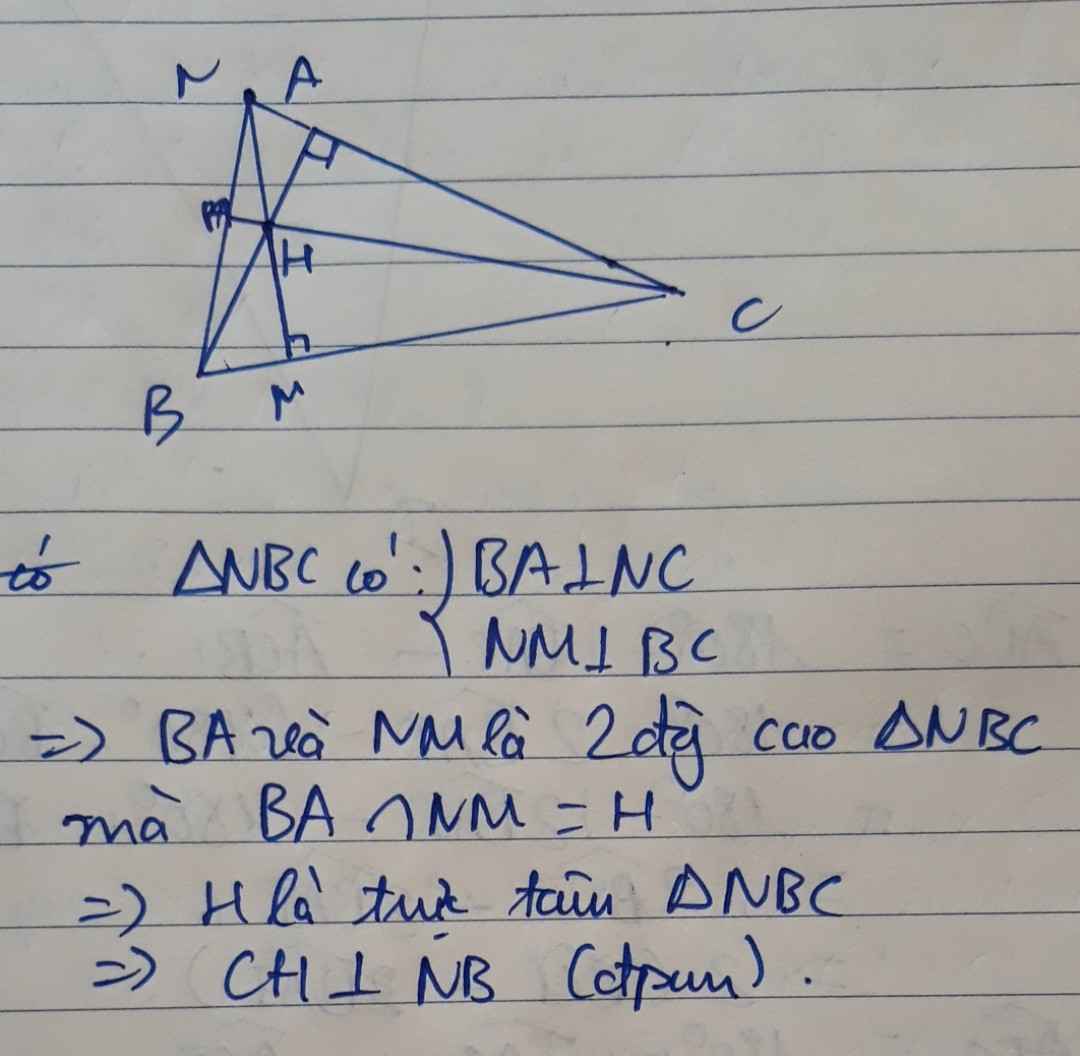 N A
H
C
B M
ΔNBC có: { BA⊥NC
NM⊥BC
=> BA và NM là 2 đg cao ΔNBC
mà BA ∩ NM = H
=> H là trực tâm ΔNBC
=> CH ⊥ NB (đpcm).